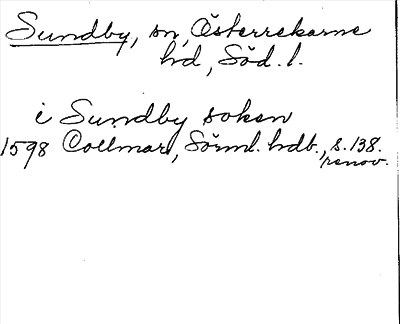 Sundby, sn, Österrekarne
hd, Söd. l.
i Sundby soken
1598 Collmar, Sörml. hdb., s. 138.
renov.